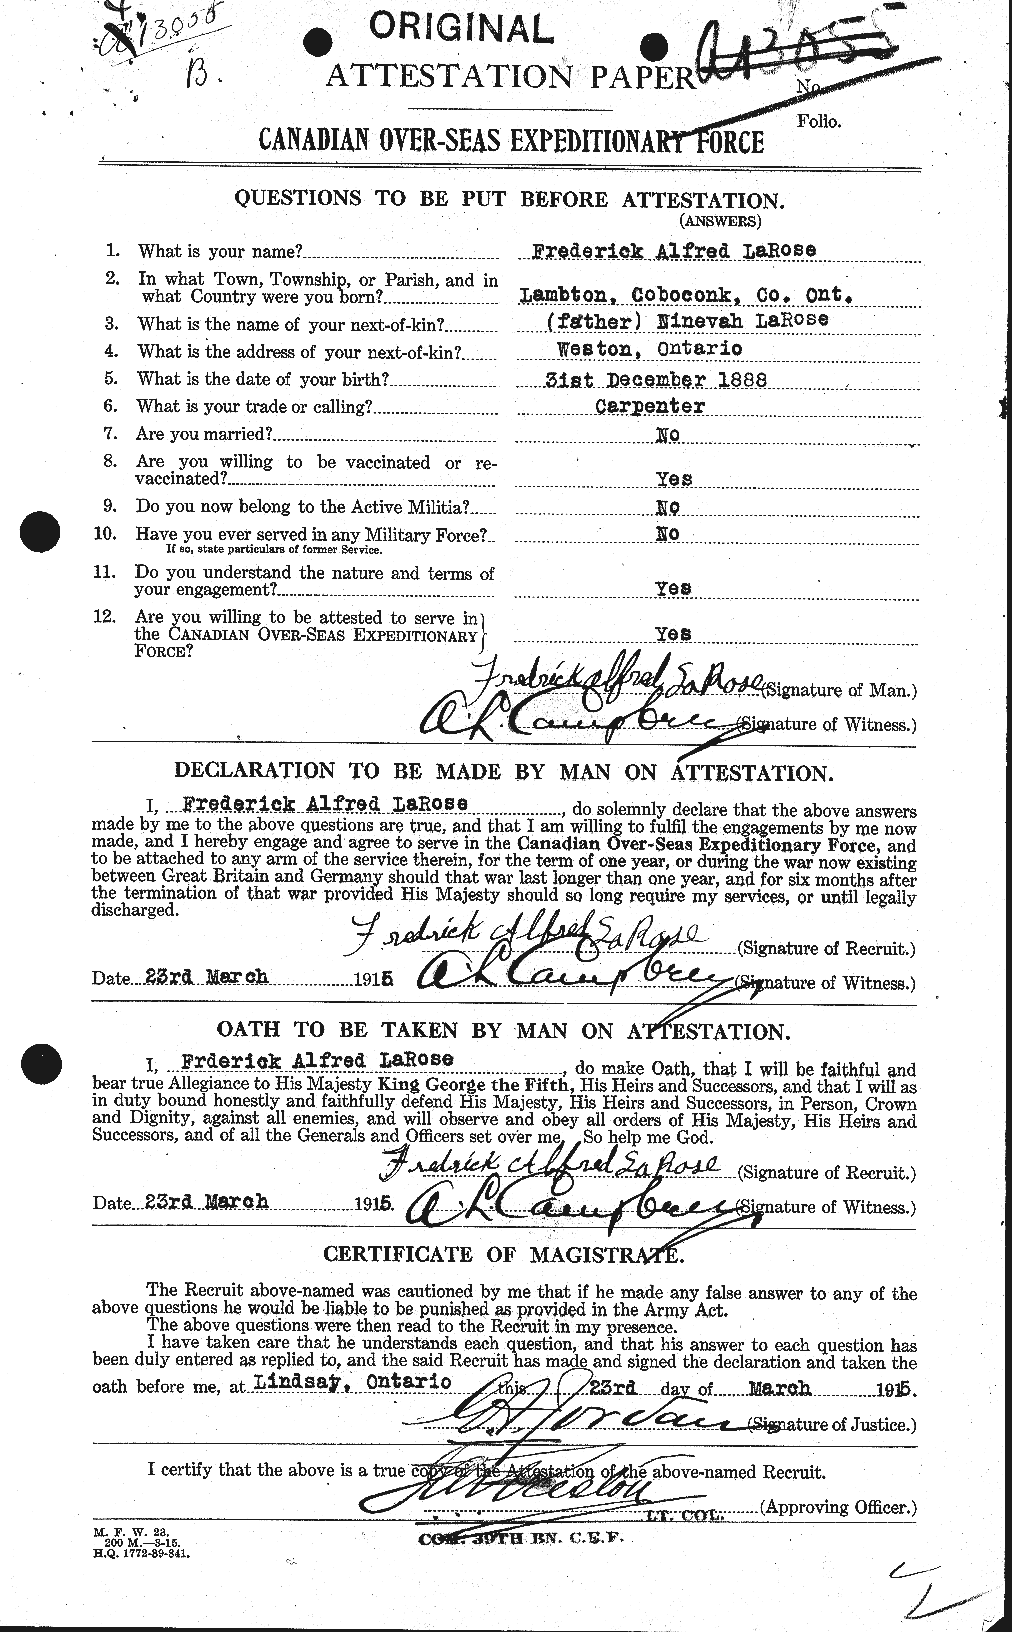 13055
B.
ORIGINAL
A13055
ATTESTATION PAPER
No.
Folio.
CANADIAN OVER-SEAS EXPEDITIONARY FORCE
QUESTIONS TO BE PUT BEFORE ATTESTATION.
(ANSWERS)
1. What is your name? Frederick Alfred LaRose
2. In what Town, Township, or Parish, and in
what Country were you born? Lambton, Coboconk, Co. Ont.
3. What is the name of your next-of-kin? (father) Ninevah LaRose
4. What is the address of your next-of-kin? Weston, Ontario
5. What is the date of your birth? 31st December 1888
6. What is your trade or calling? Carpenter
7. Are you married? No
8. Are you willing to be vaccinated or re-
vaccinated? Yes
9. Do you now belong to the Active Militia? No
10. Have you ever served in any Military Force? No
If so, state particulars of former Service.
11. Do you understand the nature and terms of
your engagement? Yes
12. Are you willing to be attested to serve in
the CANADIAN OVER-SEAS EXPEDITIONARY Yes
FORCE?
Fredrick Alfred LaRose (Signature of Man.)
(Signature of Witness.)
DECLARATION TO BE MADE BY MAN ON ATTESTATION.
I, Frederick Alfred LaRose, do solemnly declare that the above answers
made by me to the above questions are true, and that I am willing to fulfil the engagements by me now
made, and I hereby engage and agree to serve in the Canadian Over-Seas Expeditionary Force, and
to be attached to any arm of the service therein, for the term of one year, or during the war now existing
between Great Britain and Germany should that war last longer than one year, and for six months after
the termination of that war provided His Majesty should so long require my services, or until legally
discharged.
Fredrick Alfred LaRose (Signature of Recruit.)
Date 23rd March 1915 (Signature of Witness.)
OATH TO BE TAKEN BY MAN ON ATTESTATION.
I, Frderick Alfred LaRose, do make Oath, that I will be faithful and
bear true Allegiance to His Majesty King George the Fifth, His Heirs and Successors, and that I will as
in duty bound honestly and faithfully defend His Majesty, His Heirs and Successors, in Person, Crown
and Dignity, against all enemies, and will observe and obey all orders of His Majesty, His Heirs and
Successors, and of all the Generals and Officers set over me. So help me God.
Fredrick Alfred LaRose (Signature of Recruit.)
Date 23rd March 1915. (Signature of Witness.)
CERTIFICATE OF MAGISTRATE.
The Recruit above-named was cautioned by me that if he made any false answer to any of the
above questions he would be liable to be punished as provided in the Army Act.
The above questions were then read to the Recruit in my presence.
I have taken care that he understands each question, and that his answer to each question has
been duly entered as replied to, and the said Recruit has made and signed the declaration and taken the
oath before me, at Lindsay, Ontario this 23rd day of March 1915.
Jordan (Signature of Justice.)
I certify that the above is a true copy of the Attestation of the above-named Recruit.
(Approving Officer.)
LT. COL.
COM. 39TH BN. C.E.F.
M. F. W. 23.
200 M.—3-15.
H.Q. 1772-39-841.